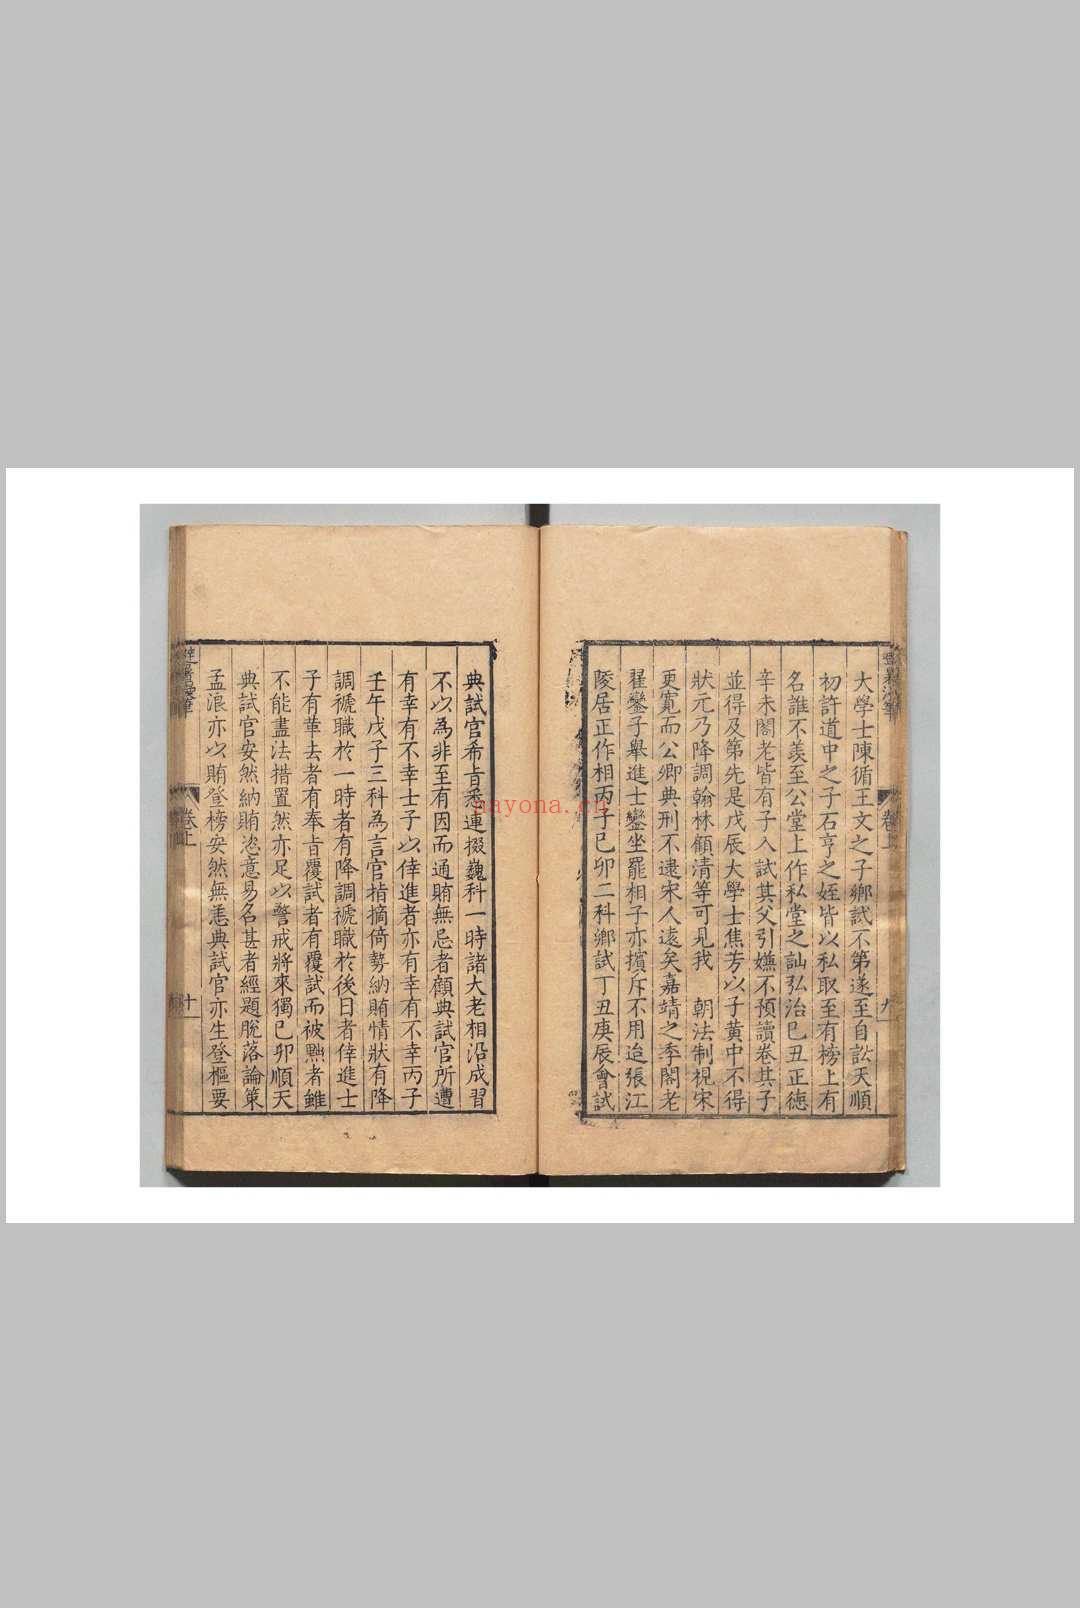 大學士陳循王文之子鄉試不第遂至自訟天順
初許道中之子石亨之姪皆以私取至有榜上有
名誰不羨至公堂上作私堂之訕弘治己丑正德
辛未閣老皆有子入試其父引嫌不預讀卷其子
並得及第先是戊辰大學士焦芳以子黃中不得
狀元乃降調翰林顧清等可見我 朝法制視宋
更寬而公卿典刑不逮宋人遠矣嘉靖之季閣老
翟鑾子舉進士鑾坐罷相子亦擯斥不用迨張江
陵居正作相丙子己卯二科鄉試丁丑庚辰會試
卷上
九
典試官希㫖悉連掇巍科一時諸大老相沿成習
不以為非至有因而通賄無忌者顧典試官所遭
有幸有不幸士子以倖進者亦有幸有不幸丙子
壬午戊子三科為言官指摘倚勢納賄情狀有降
調褫職於一時者有降調褫職於後日者倖進士
子有革去者有奉㫖覆試者有覆試而被黜者雖
不能盡法措置然亦足以警戒將來獨己卯順天
典試官安然納賄恣意易名甚者經題脫落論策
孟浪亦以賄登榜安然無恙典試官亦生登樞要
避暑漫筆
卷上
十
nayona.cn